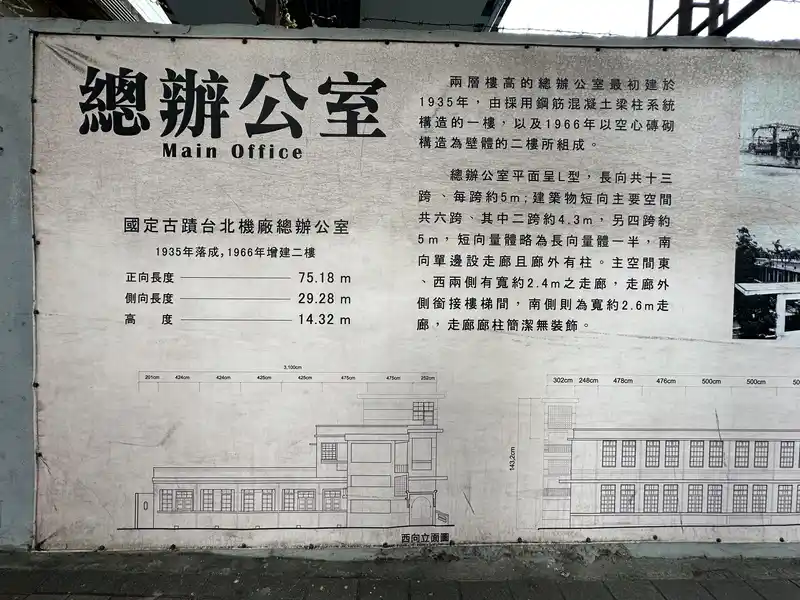 總辦公室
Main Office
國定古蹟台北機廠總辦公室
1935年落成,1966年增建二樓
正向長度 75.18 m
側向長度 29.28 m
高 度 14.32 m
兩層樓高的總辦公室最初建於
1935年，由採用鋼筋混凝土梁柱系統
構造的一樓，以及1966年以空心磚砌
構造為壁體的二樓所組成。
總辦公室平面呈L型，長向共十三
跨、每跨約5m;建築物短向主要空間
共六跨、其中二跨約4.3m，另四跨約
5m，短向量體略為長向量體一半，南
向單邊設走廊且廊外有柱。主空間東
、西兩側有寬約2.4m之走廊，走廊外
側銜接樓梯間，南側則為寬約2.6m走
廊，走廊廊柱簡潔無裝飾。
3,100cm
201cm 424cm 424cm 425cm 425cm 475cm 475cm 252cm
西向立面圖
302cm 248cm 478cm 476cm 500cm 500cm